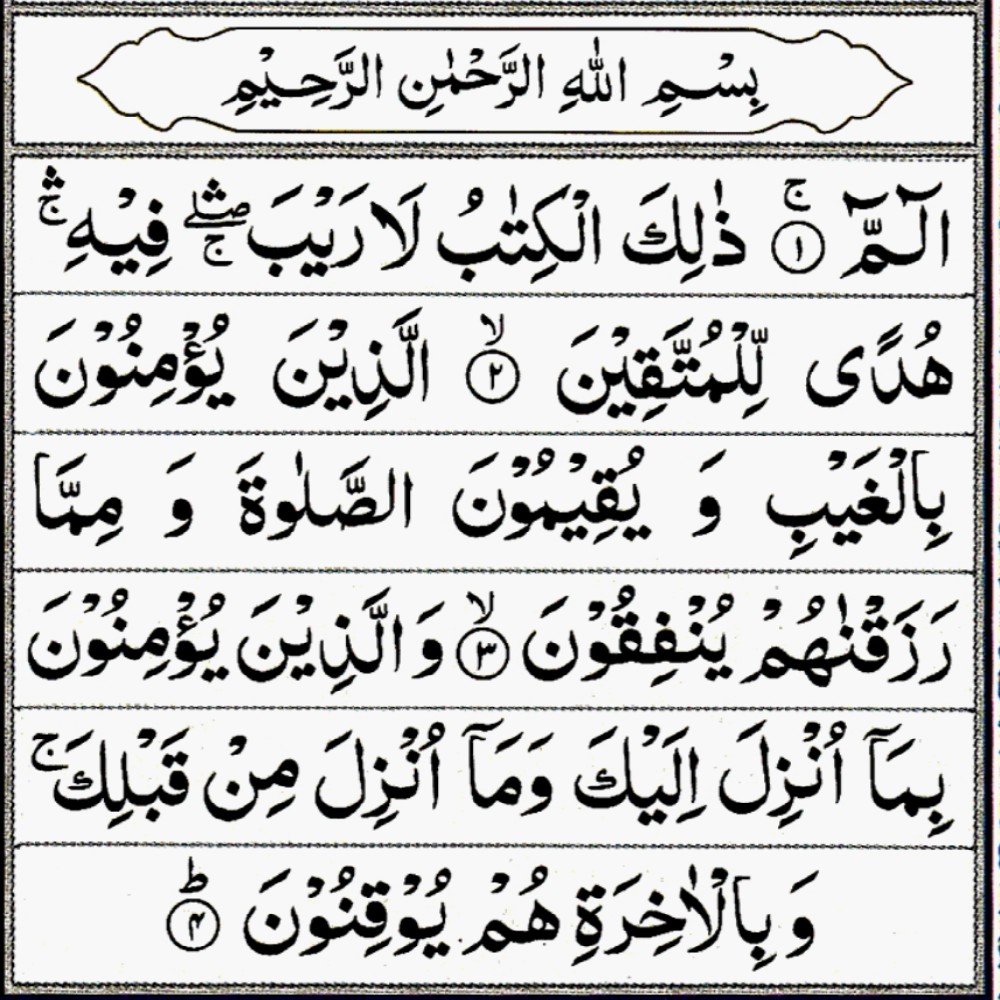 بِسْمِ اللهِ الرَّحْمٰنِ الرَّحِيْمِ
الٓـمّٓ ۚ ﴿۱﴾ ذٰلِكَ الْكِتٰبُ لَا رَيْبَ ۛۖۚ فِيْهِ ۛۚ
هُدًى لِّلْمُتَّقِيْنَ ۙ ﴿۲﴾ الَّذِيْنَ يُؤْمِنُوْنَ
بِالْغَيْبِ وَ يُقِيْمُوْنَ الصَّلٰوةَ وَ مِمَّا
رَزَقْنٰهُمْ يُنْفِقُوْنَ ۙ ﴿۳﴾ وَ الَّذِيْنَ يُؤْمِنُوْنَ
بِمَآ اُنْزِلَ اِلَيْكَ وَمَآ اُنْزِلَ مِنْ قَبْلِكَ ۚ
وَ بِالْاٰخِرَةِ هُمْ يُوْقِنُوْنَ ؕ ﴿۴﴾